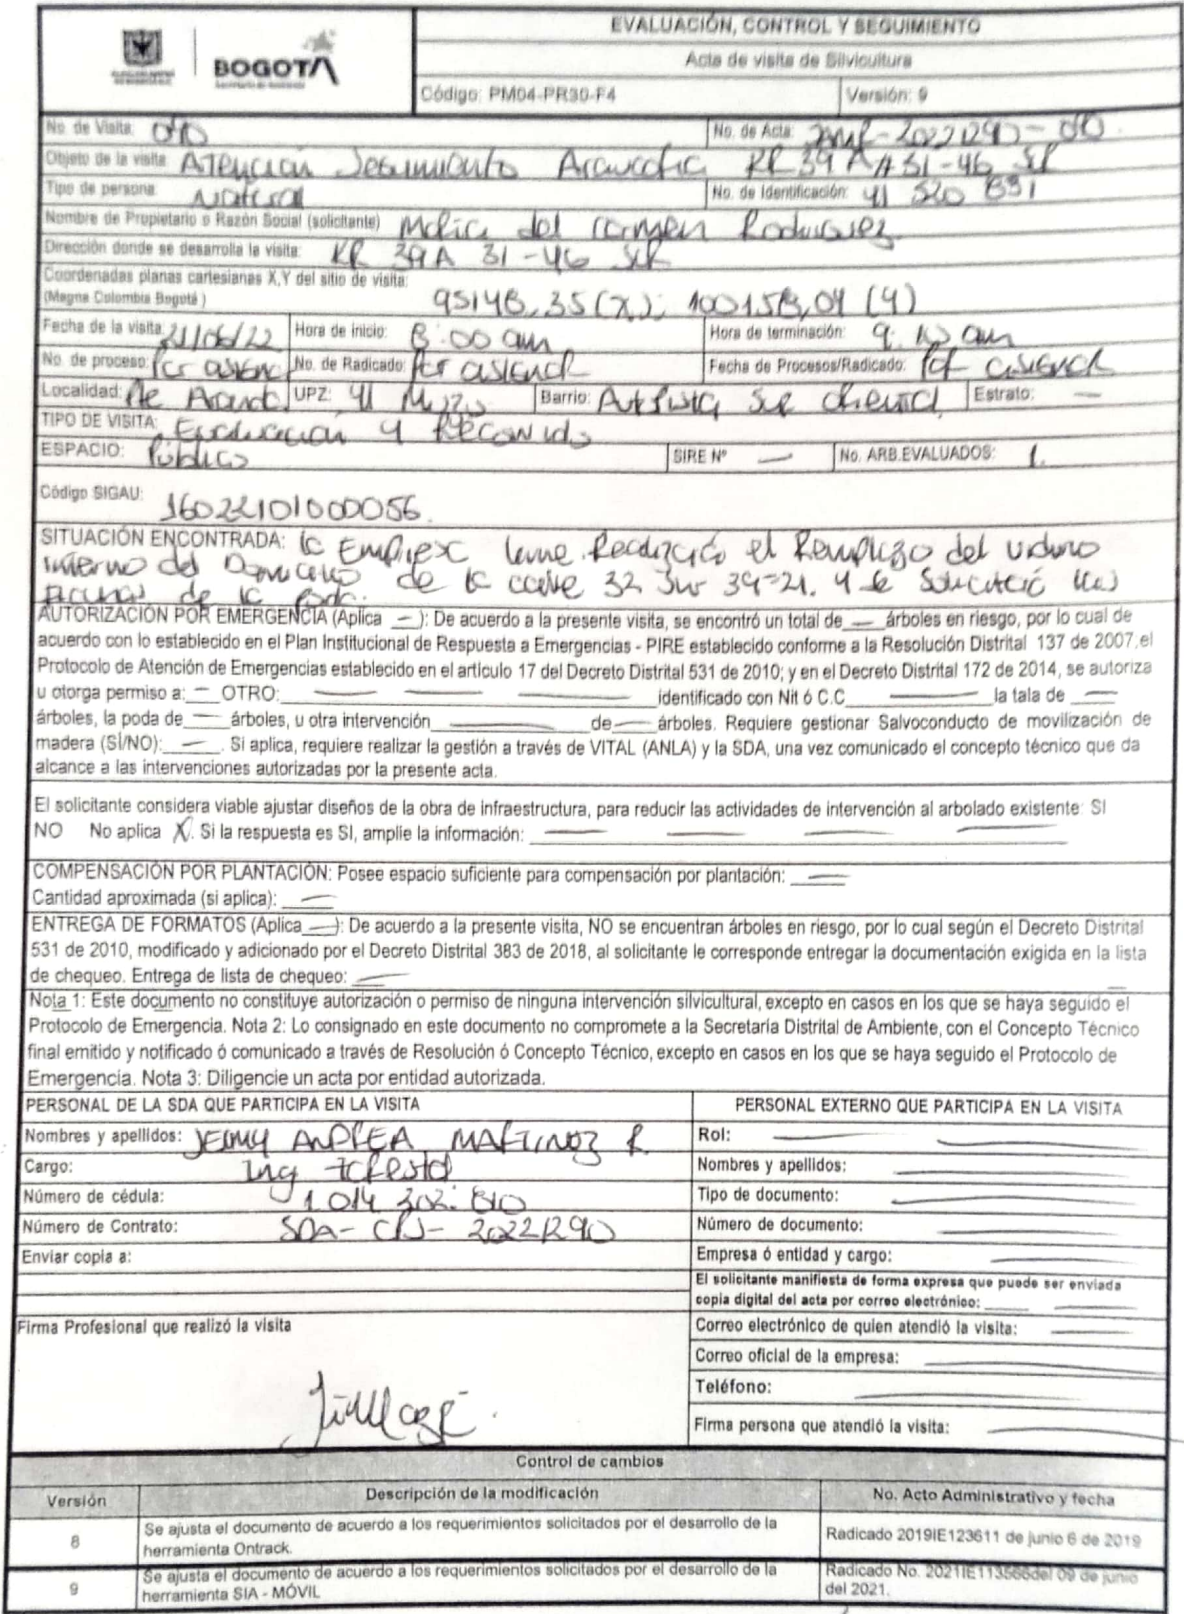 BOGOTÁ
EVALUACIÓN, CONTROL Y SEGUIMIENTO
Acta de visita de Silvicultura
Código: PM04-PR30-F4 Versión: 9
No. de Visita: No. de Acta:
Objeto de la visita: Atención Seguimiento Araucaria KR 39 A # 31-46 SUR
Tipo de persona: Natural No. de Identificación: 41 520 831
Nombre de Propietario o Razón Social (solicitante) Maria del carmen Rodriguez
Dirección donde se desarrolla la visita: KR 39A 31-46 SUR
Coordenadas planas cartesianas X,Y del sitio de visita:
(Magna Colombia Bogotá) 95148,35 (X); 100158,04 (Y)
Fecha de la visita: 21/06/22 Hora de inicio: 8:00 am Hora de terminación: 9:10 am
No. de proceso: Por asignar No. de Radicado: Por asignar Fecha de Procesos/Radicado: Por asignar
Localidad: Pte Aranda UPZ: 41 Muzu Barrio: Autopista Sur Oriental Estrato: —
TIPO DE VISITA: Evaluación y Recorrido
ESPACIO: Público SIRE Nº — No. ARB.EVALUADOS: 1.
Código SIGAU: 16022101000056
SITUACIÓN ENCONTRADA: la Empresa Realizará el Remplazo del vidrio
interno del Domicilio de la calle 32 Sur 39-21. y se Solicitará
de la
AUTORIZACIÓN POR EMERGENCIA (Aplica —): De acuerdo a la presente visita, se encontró un total de — árboles en riesgo, por lo cual de
acuerdo con lo establecido en el Plan Institucional de Respuesta a Emergencias - PIRE establecido conforme a la Resolución Distrital 137 de 2007,el
Protocolo de Atención de Emergencias establecido en el artículo 17 del Decreto Distrital 531 de 2010; y en el Decreto Distrital 172 de 2014, se autoriza
u otorga permiso a: — OTRO: — — — identificado con Nit ó C.C — la tala de —
árboles, la poda de — árboles, u otra intervención — de — árboles. Requiere gestionar Salvoconducto de movilización de
madera (SÍ/NO): — . Si aplica, requiere realizar la gestión a través de VITAL (ANLA) y la SDA, una vez comunicado el concepto técnico que da
alcance a las intervenciones autorizadas por la presente acta.
El solicitante considera viable ajustar diseños de la obra de infraestructura, para reducir las actividades de intervención al arbolado existente: SI
NO No aplica X. Si la respuesta es SI, amplie la información: — — — —
COMPENSACIÓN POR PLANTACIÓN: Posee espacio suficiente para compensación por plantación: —
Cantidad aproximada (si aplica): —
ENTREGA DE FORMATOS (Aplica —): De acuerdo a la presente visita, NO se encuentran árboles en riesgo, por lo cual según el Decreto Distrital
531 de 2010, modificado y adicionado por el Decreto Distrital 383 de 2018, al solicitante le corresponde entregar la documentación exigida en la lista
de chequeo. Entrega de lista de chequeo: —
Nota 1: Este documento no constituye autorización o permiso de ninguna intervención silvicultural, excepto en casos en los que se haya seguido el
Protocolo de Emergencia. Nota 2: Lo consignado en este documento no compromete a la Secretaría Distrital de Ambiente, con el Concepto Técnico
final emitido y notificado ó comunicado a través de Resolución ó Concepto Técnico, excepto en casos en los que se haya seguido el Protocolo de
Emergencia. Nota 3: Diligencie un acta por entidad autorizada.
PERSONAL DE LA SDA QUE PARTICIPA EN LA VISITA PERSONAL EXTERNO QUE PARTICIPA EN LA VISITA
Nombres y apellidos: JEIMY ANDREA MARTINEZ R Rol: — —
Cargo: Ing Forestal Nombres y apellidos: —
Número de cédula: 1.014 302. 810 Tipo de documento: —
Número de Contrato: SDA-CPS-20221290 Número de documento: —
Enviar copia a: Empresa ó entidad y cargo: —
El solicitante manifiesta de forma expresa que puede ser enviada
copia digital del acta por correo electrónico: —
Firma Profesional que realizó la visita Correo electrónico de quien atendió la visita: —
Correo oficial de la empresa: —
Teléfono: —
Firma persona que atendió la visita: —
Control de cambios
Versión Descripción de la modificación No. Acto Administrativo y fecha
8 Se ajusta el documento de acuerdo a los requerimientos solicitados por el desarrollo de la
herramienta Ontrack. Radicado 2019IE123611 de junio 6 de 2019
9 Se ajusta el documento de acuerdo a los requerimientos solicitados por el desarrollo de la
herramienta SIA - MÓVIL Radicado No. 2021IE113566del 09 de junio
del 2021.